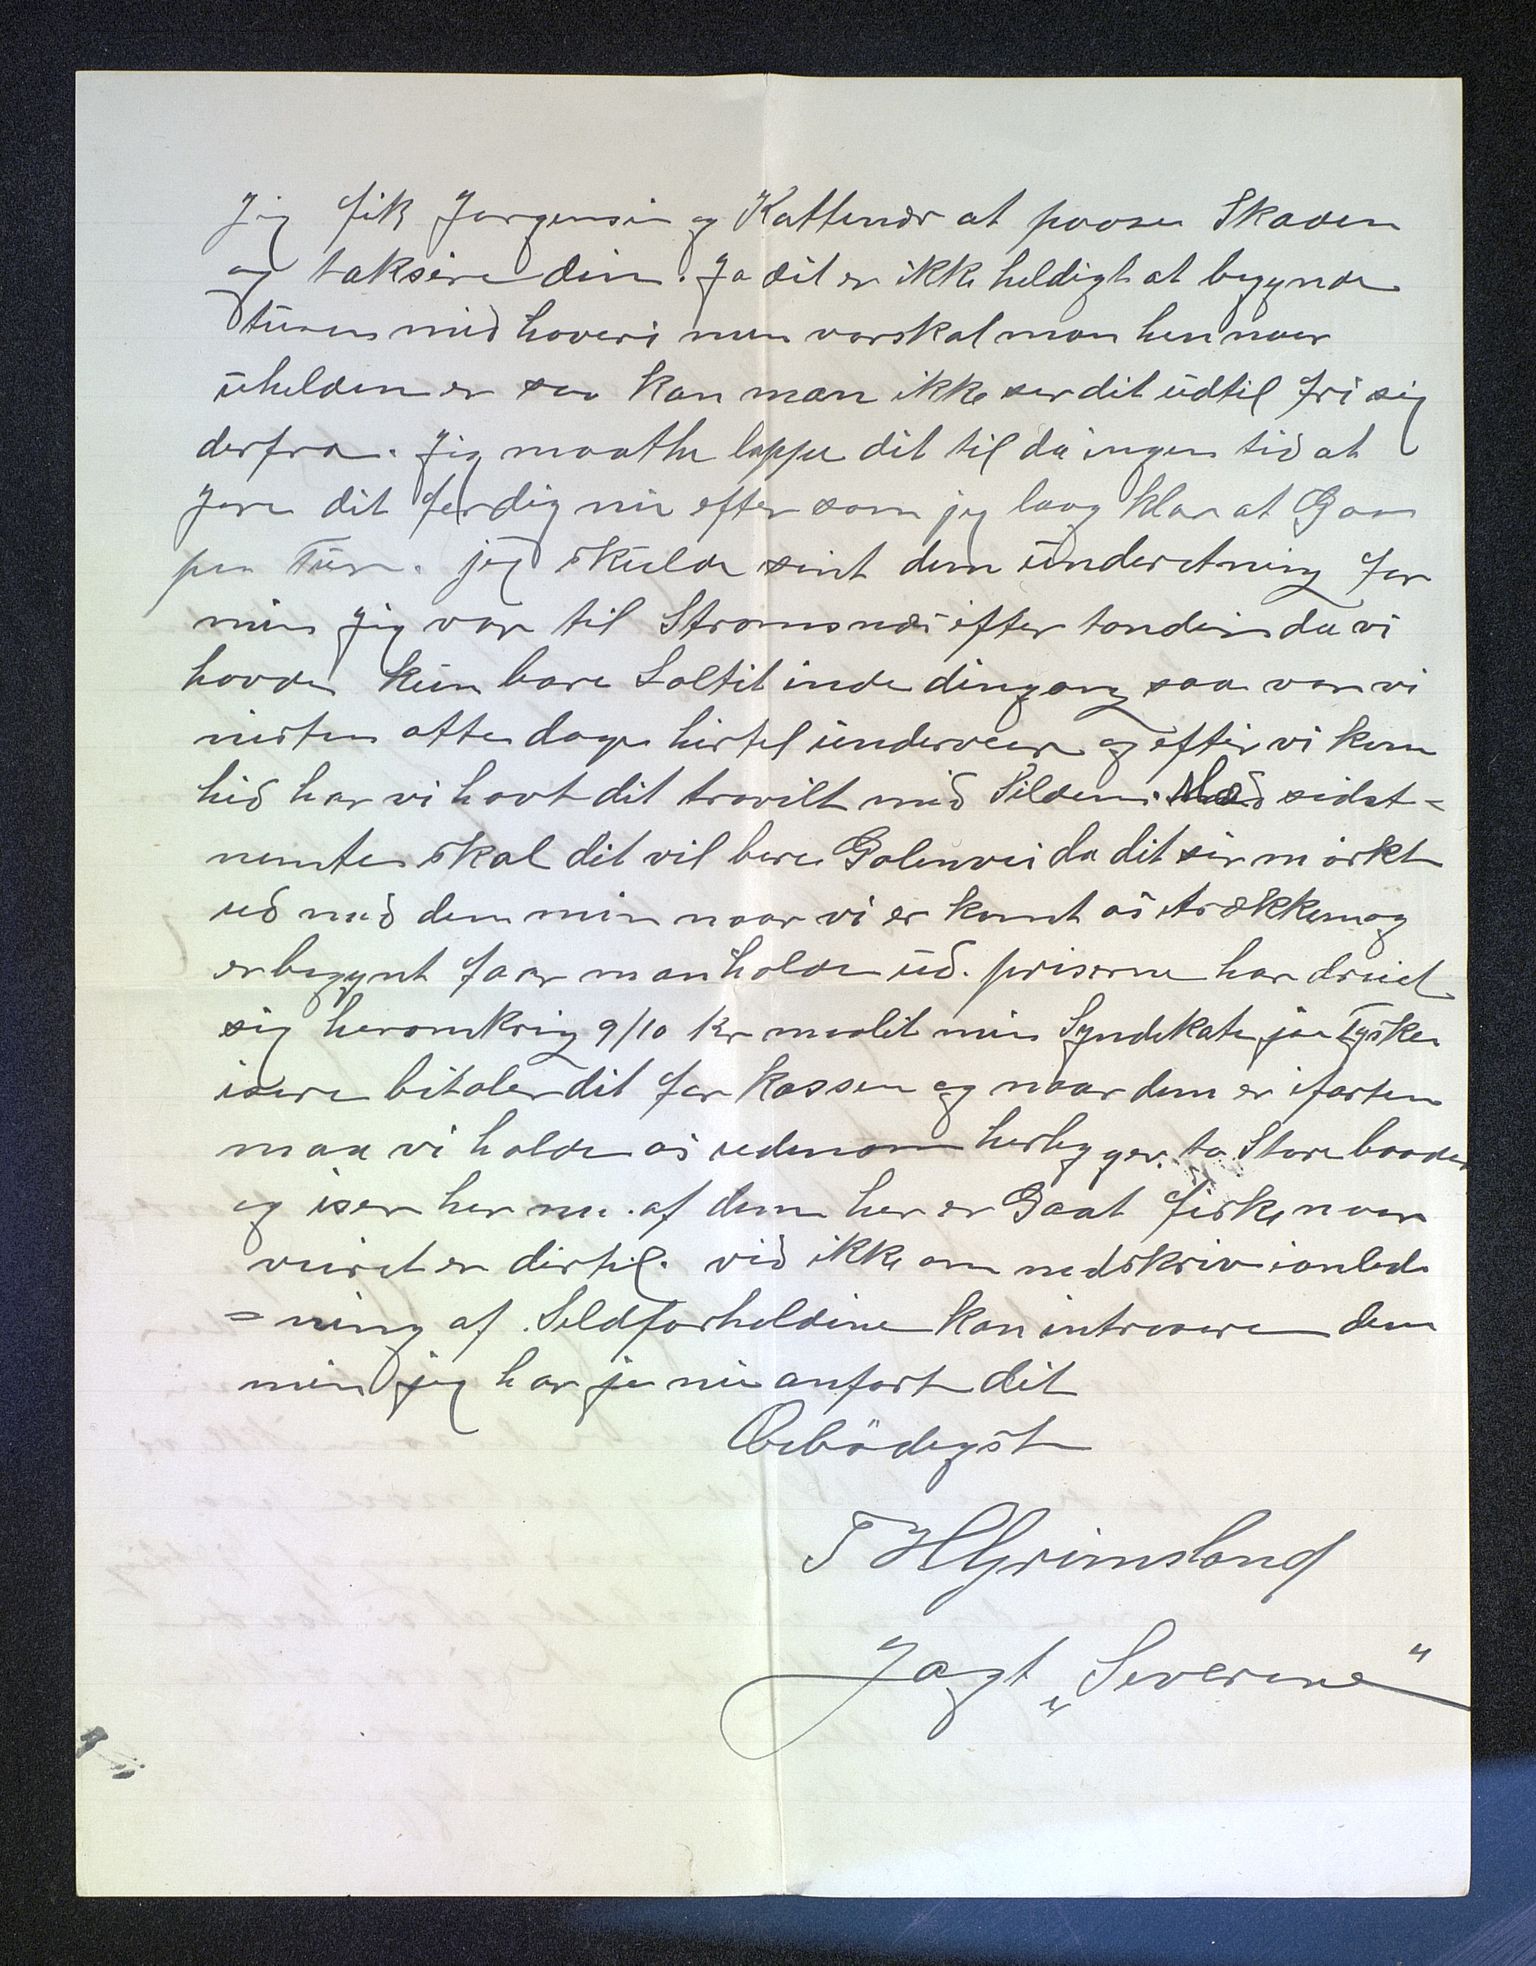 Jeg fik Jorgensen og Kattenær at paase Skaden
og taksere den. Ja dit er ikke heldigt at begynde
turen mid haveri men varskal man hen naar
uhelden er saa kan man ikke ser dit udtil fri sig
derfra. Jeg maatte lappe dit til da ingen tid at
jøre dit ferdig nu efter som jeg laag klar at Gaa
paa Tur. jeg skulde sint dem underetning for
min jeg var til Stromsnæs efter tønder da vi
havde kun bare Saltit inde dengang saa var vi
nesten otte dage hertil underveir og efter vi kom
hid har vi havt dit travilt mid Silden. Med sidst-
nemte skal dit vil bere Galenvei da dit ser mørkt
ud mid dem min naar vi er komt os i trækken og
er begynt faar man holde ud. priserne har driet
sig heromkring 9/10 Kr maalit min Syndekate jaa Tyske
isere bitaler dit for kassen og naar dem er i farten
maa vi holde os udenom herligger. to Store baader
og iser her nu. af dem her er Gaat fiske naar
veiret er dertil. vid ikke om nedskriv ianled
=ning af Sildforholdene kan intresere dem
min jeg har ja nu anført dit
Ærbødigst
T H Grimsland
Jagt "Severine"